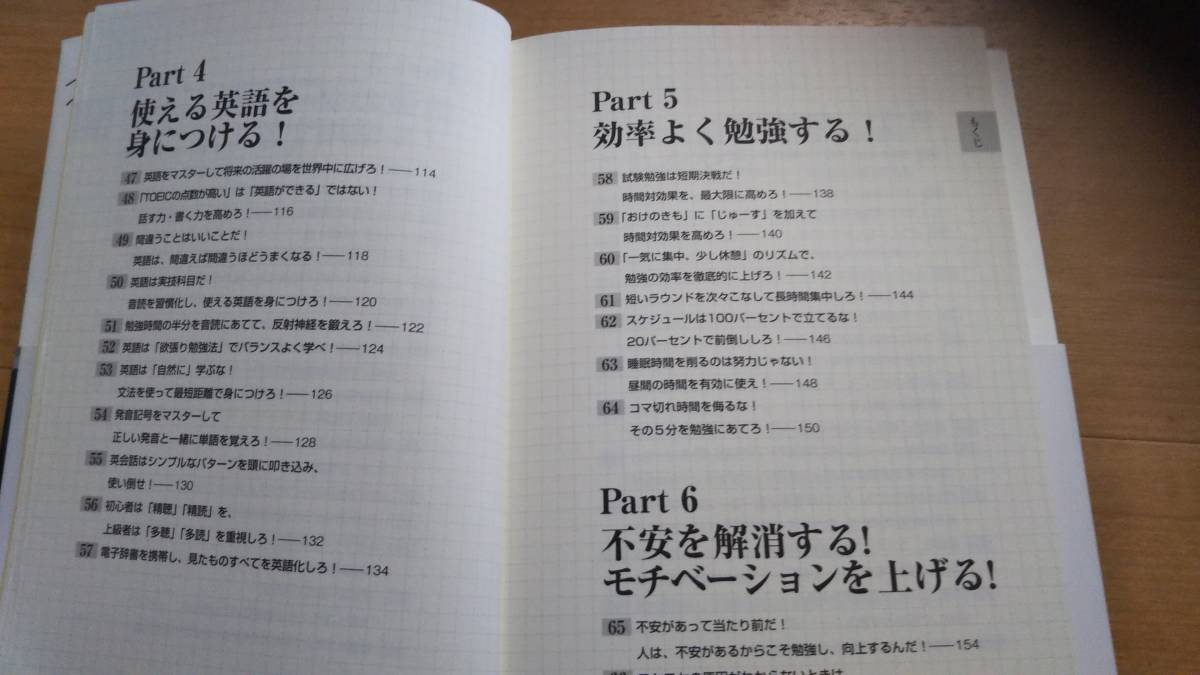 Part 4
使える英語を
身につける！
47 英語をマスターして将来の活躍の場を世界中に広げろ！──114
48 「TOEICの点数が高い」は「英語ができる」ではない！
話す力・書く力を高めろ！──116
49 間違うことはいいことだ！
英語は、間違えば間違うほどうまくなる！──118
50 英語は実技科目だ！
音読を習慣化し、使える英語を身につけろ！──120
51 勉強時間の半分を音読にあてて、反射神経を鍛えろ！──122
52 英語は「欲張り勉強法」でバランスよく学べ！──124
53 英語は「自然に」学ぶな！
文法を使って最短距離で身につけろ！──126
54 発音記号をマスターして
正しい発音と一緒に単語を覚えろ！──128
55 英会話はシンプルなパターンを頭に叩き込み、
使い倒せ！──130
56 初心者は「精聴」「精読」を、
上級者は「多聴」「多読」を重視しろ！──132
57 電子辞書を携帯し、見たものすべてを英語化しろ！──134
もくじ
Part 5
効率よく勉強する！
58 試験勉強は短期決戦だ！
時間対効果を、最大限に高めろ！──138
59 「おけのきも」に「じゅーす」を加えて
時間対効果を高めろ！──140
60 「一気に集中、少し休憩」のリズムで、
勉強の効率を徹底的に上げろ！──142
61 短いラウンドを次々こなして長時間集中しろ！──144
62 スケジュールは100パーセントで立てるな！
20パーセントで前倒ししろ！──146
63 睡眠時間を削るのは努力じゃない！
昼間の時間を有効に使え！──148
64 コマ切れ時間を侮るな！
その5分を勉強にあてろ！──150
Part 6
不安を解消する！
モチベーションを上げる！
65 不安があって当たり前だ！
人は、不安があるからこそ勉強し、向上するんだ！──154